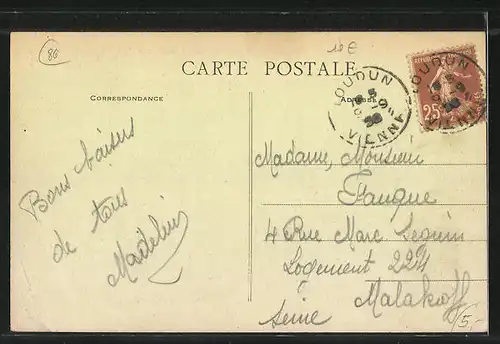 86
12E
CARTE POSTALE
CORRESPONDANCE
ADRESSE
LOUDUN
VIENNE
LOUDUN
VIENNE
25
Bons baisers
de tous
Madeleine
Madame, Monsieur
Fauque
4 Rue Marc Seguin
Logement 224
Malakoff
Seine
15,-